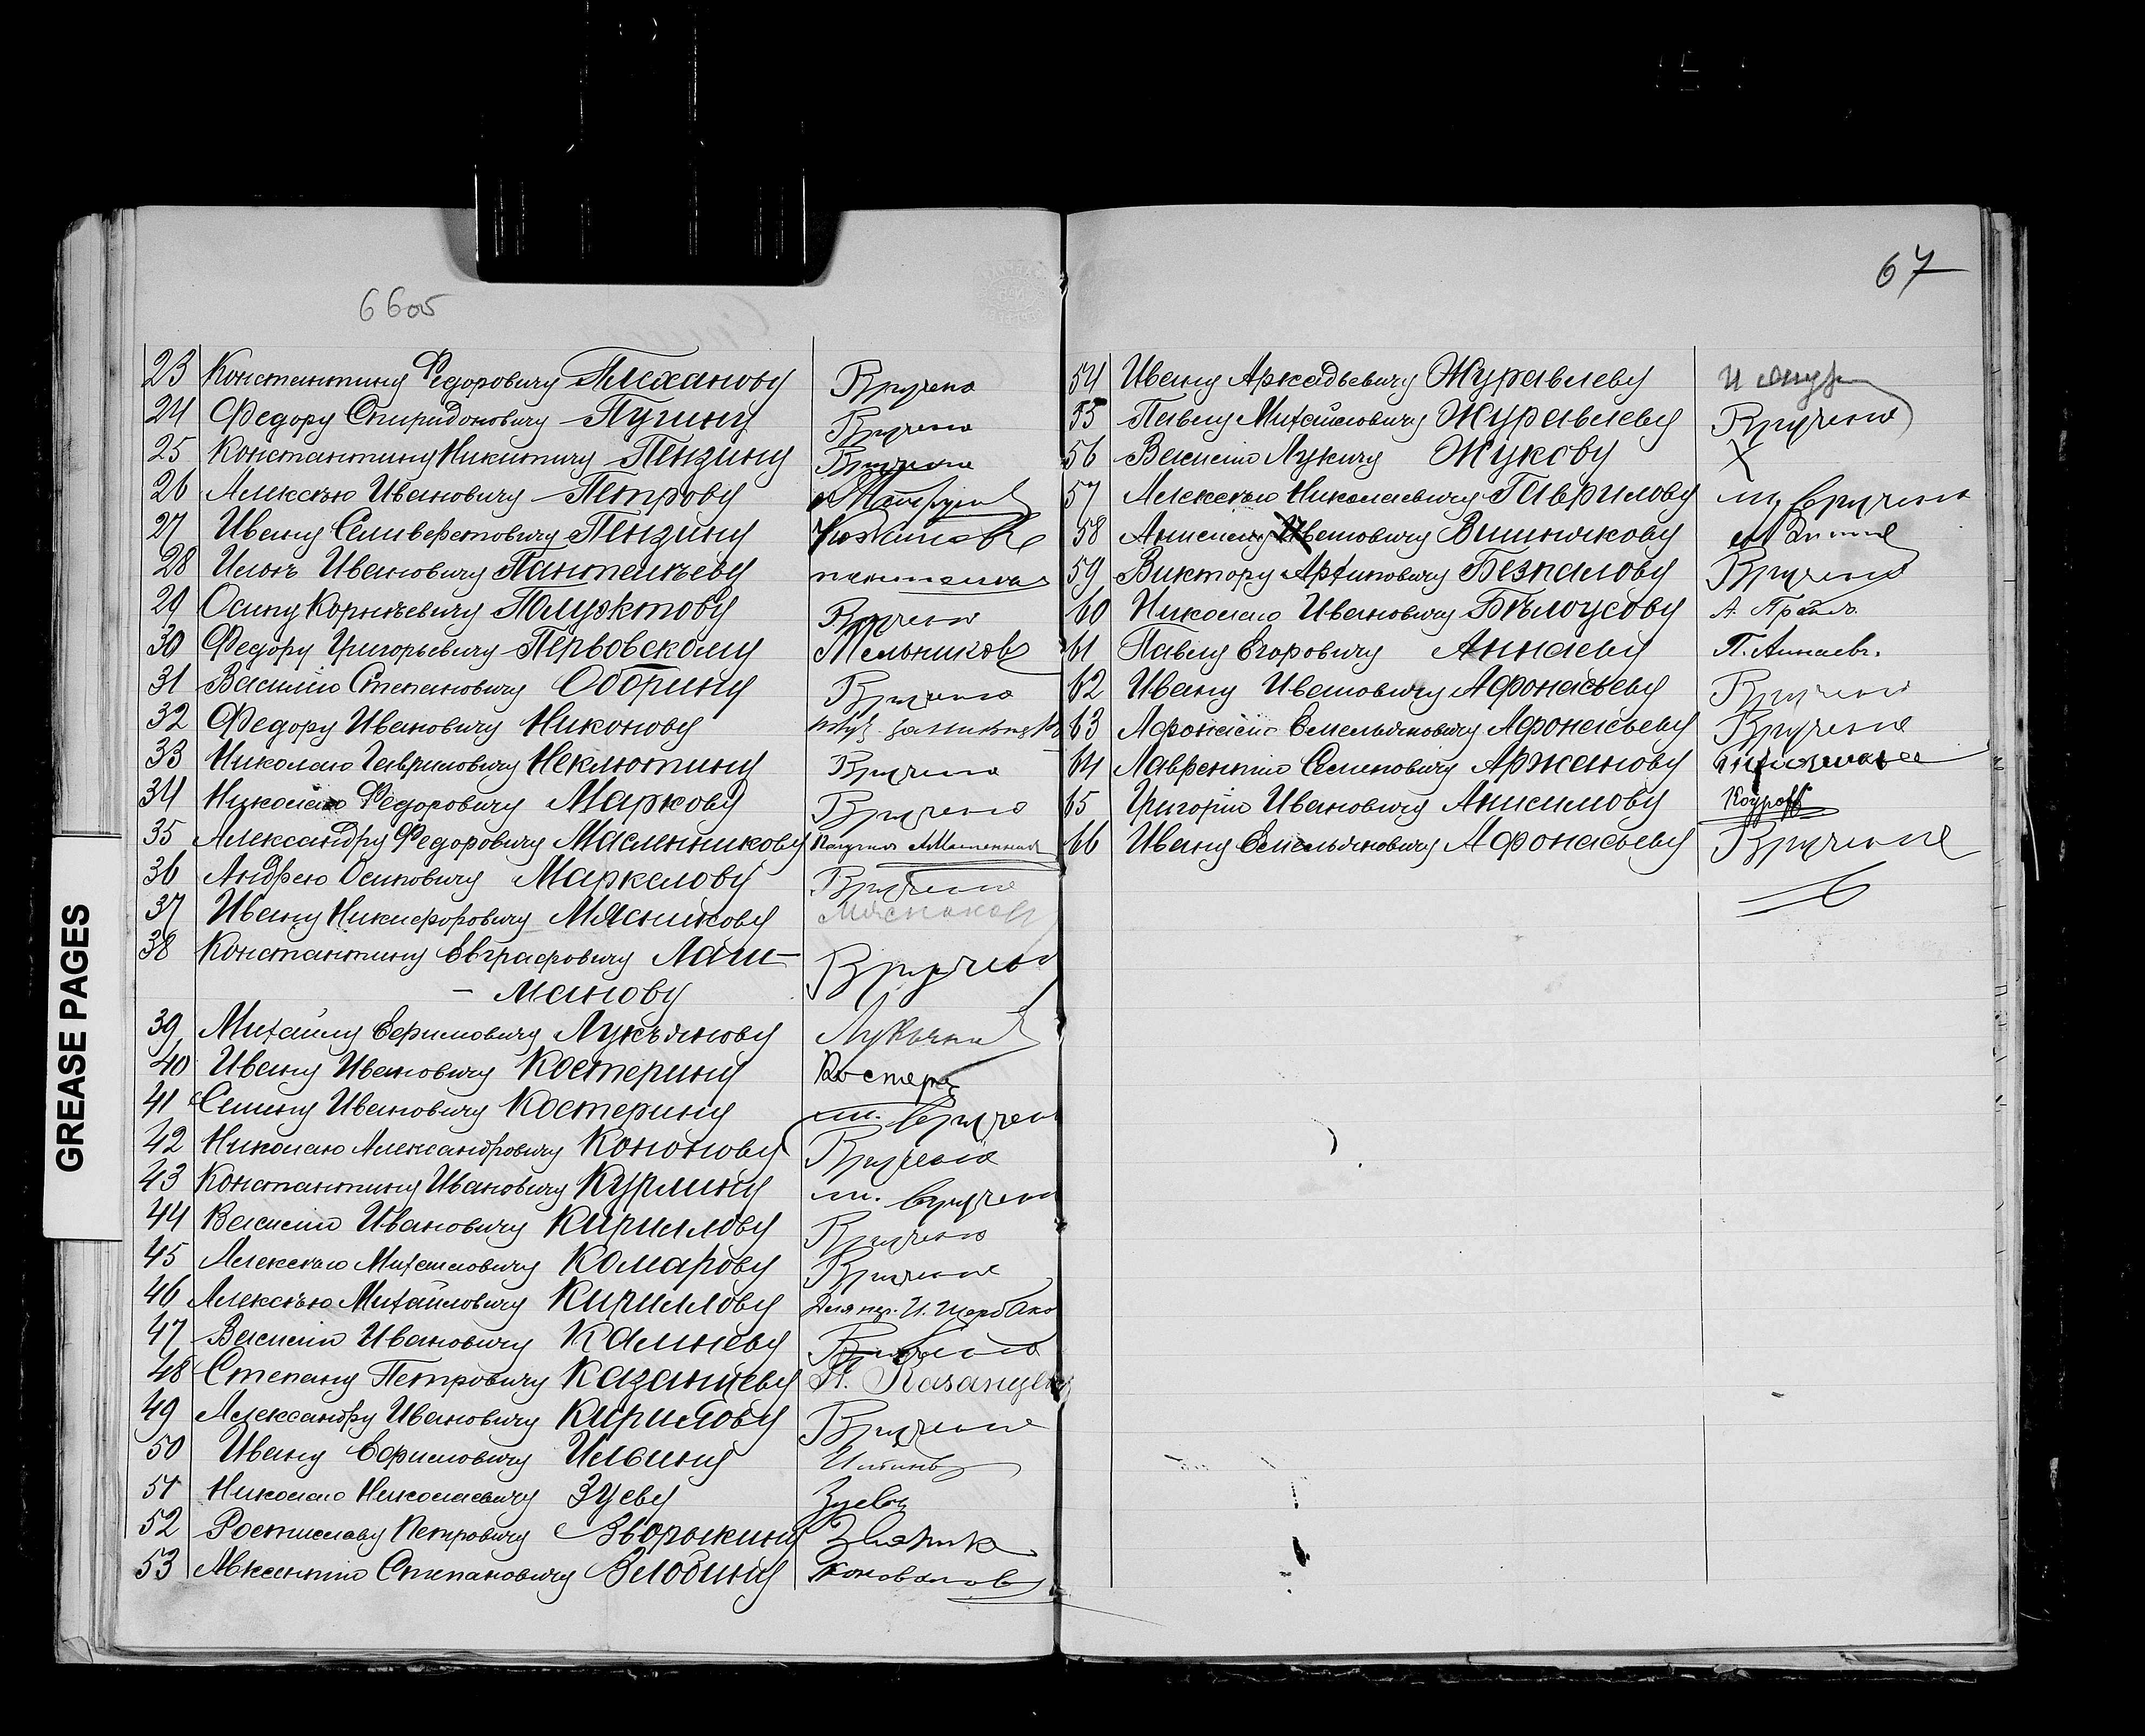 6605
67
23 Константину Федоровичу Плеханову Вручено
24 Федору Спиридоновичу Пугину Вручено
25 Константину Никитичу Пензину Вручено
26 Алексѣю Ивановичу Петрову
27 Ивану Селиверстовичу Пензину
28 Ивану Ивановичу Пантелѣеву
29 Осипу Корнѣевичу Полуэктову Вручено
30 Федору Григорьевичу Перьовскому Мельниковъ
31 Василію Степановичу Оборину Вручено
32 Федору Ивановичу Никонову
33 Николаю Гавриловичу Неклютину Вручено
34 Николаю Федоровичу Маркову Вручено
35 Александру Федоровичу Масленникову
36 Андрею Осиповичу Маркелову Вручено
37 Ивану Никифоровичу Мясникову Мясников
38 Константину Евграфовичу Лаш-
– манову Вручено
39 Михаилу Ефимовичу Лукъянову
40 Ивану Ивановичу Костерину
41 Ивановичу Костерину вручено
42 Николаю Александровичу Кононову Вручено
43 Константину Ивановичу Курлину вручено
44 Василію Ивановичу Кириллову Вручено
45 Алексѣю Михаиловичу Комарову Вручено
46 Алексѣю Михайловичу Кириллову
47 Василію Ивановичу Калиневу Вручено
48 Степану Петровичу Казанцеву
49 Александру Ивановичу Вручено
50 Ивану Ефимовичу Ильину
51 Николаю Николаевичу Зуеву Зуевъ
52 Ростиславу Петровичу Зворыкину
53 Авксентію Степановичу Злобину Коновалов
54 Ивану Аркадьевичу Журавлеву
55 Павлу Михайловичу Журавлеву Вручено
56 Василію Лукичу Жукову X
57 Алексѣю Николаевичу Гаврилову вручено
58 Вишнякову
59 Виктору Архиповичу Безпалову Вручено
60 Николаю Ивановичу Бѣлоусову
61 Павлу Егоровичу Аннаеву П. Аннаевъ.
62 Ивану Ивановичу Афонасьеву Вручено
63 Афонасію Емельяновичу Афонасьеву Вручено
64 Лаврентію Семеновичу Аржанову
65 Григорію Ивановичу Анисимову
66 Ивану Емельяновичу Афонасьеву Вручено
GREASE PAGES